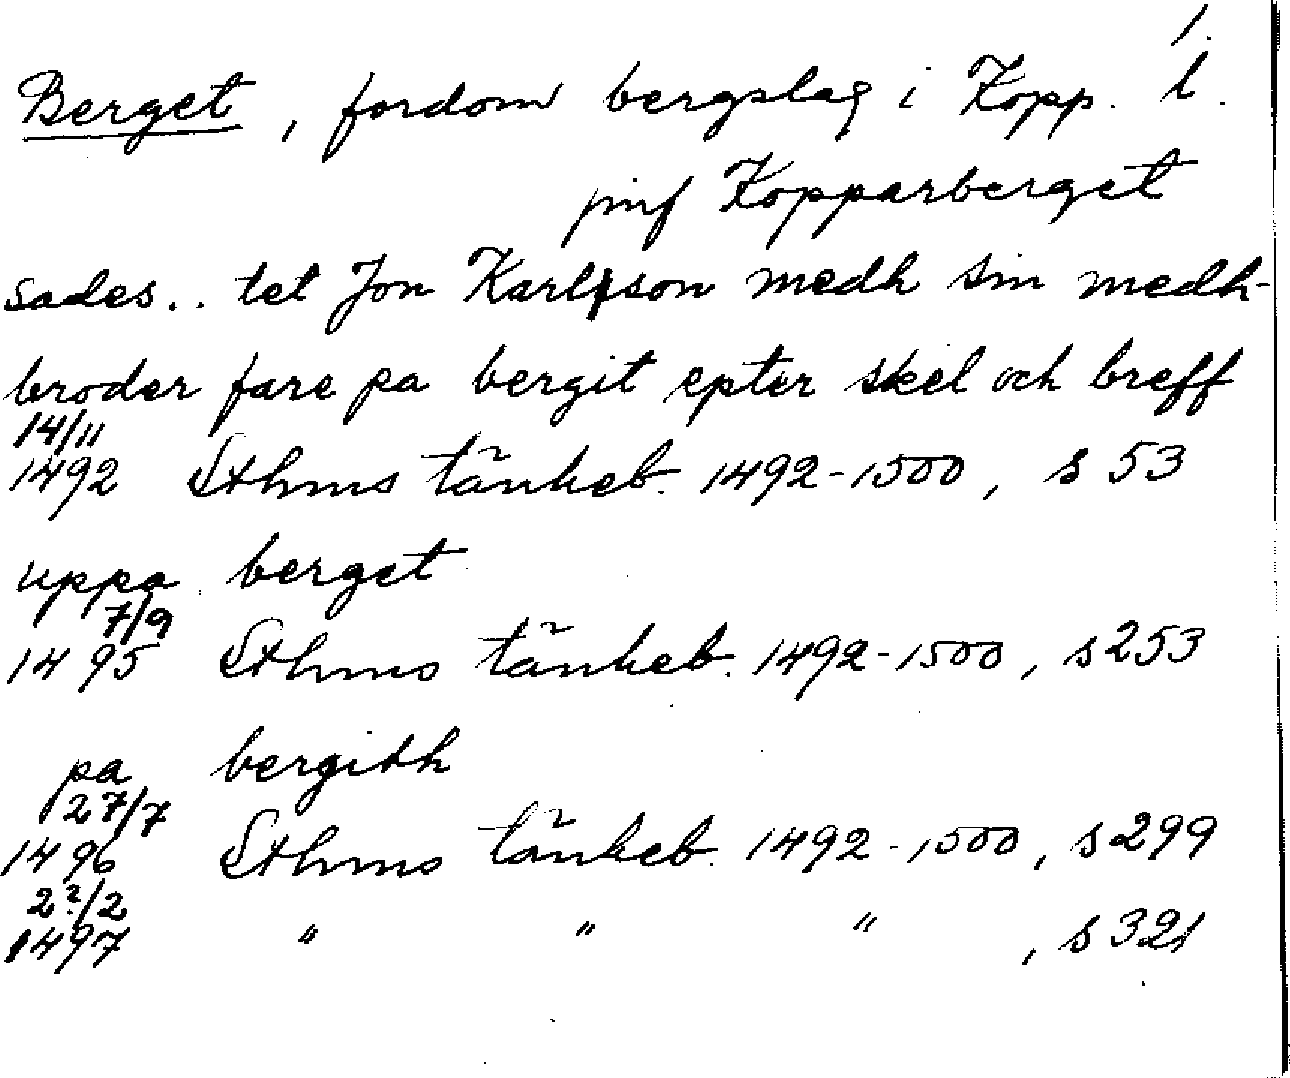 1.
Berget, fordom bergslag i Kopp. l.
jmf Kopparberget
sades.. tet Jon Karlsson medh sin medh-
broder fare pa bergit epter skel och breff
14/11
1492 Sthms tänkeb. 1492-1500, s 53
uppa berget
7/9
1495 Sthms tänkeb. 1492-1500, s 253
pa bergith
27/7
1496 Sthms tänkeb. 1492-1500, s 299
2?/2
1497 " " " , s 321